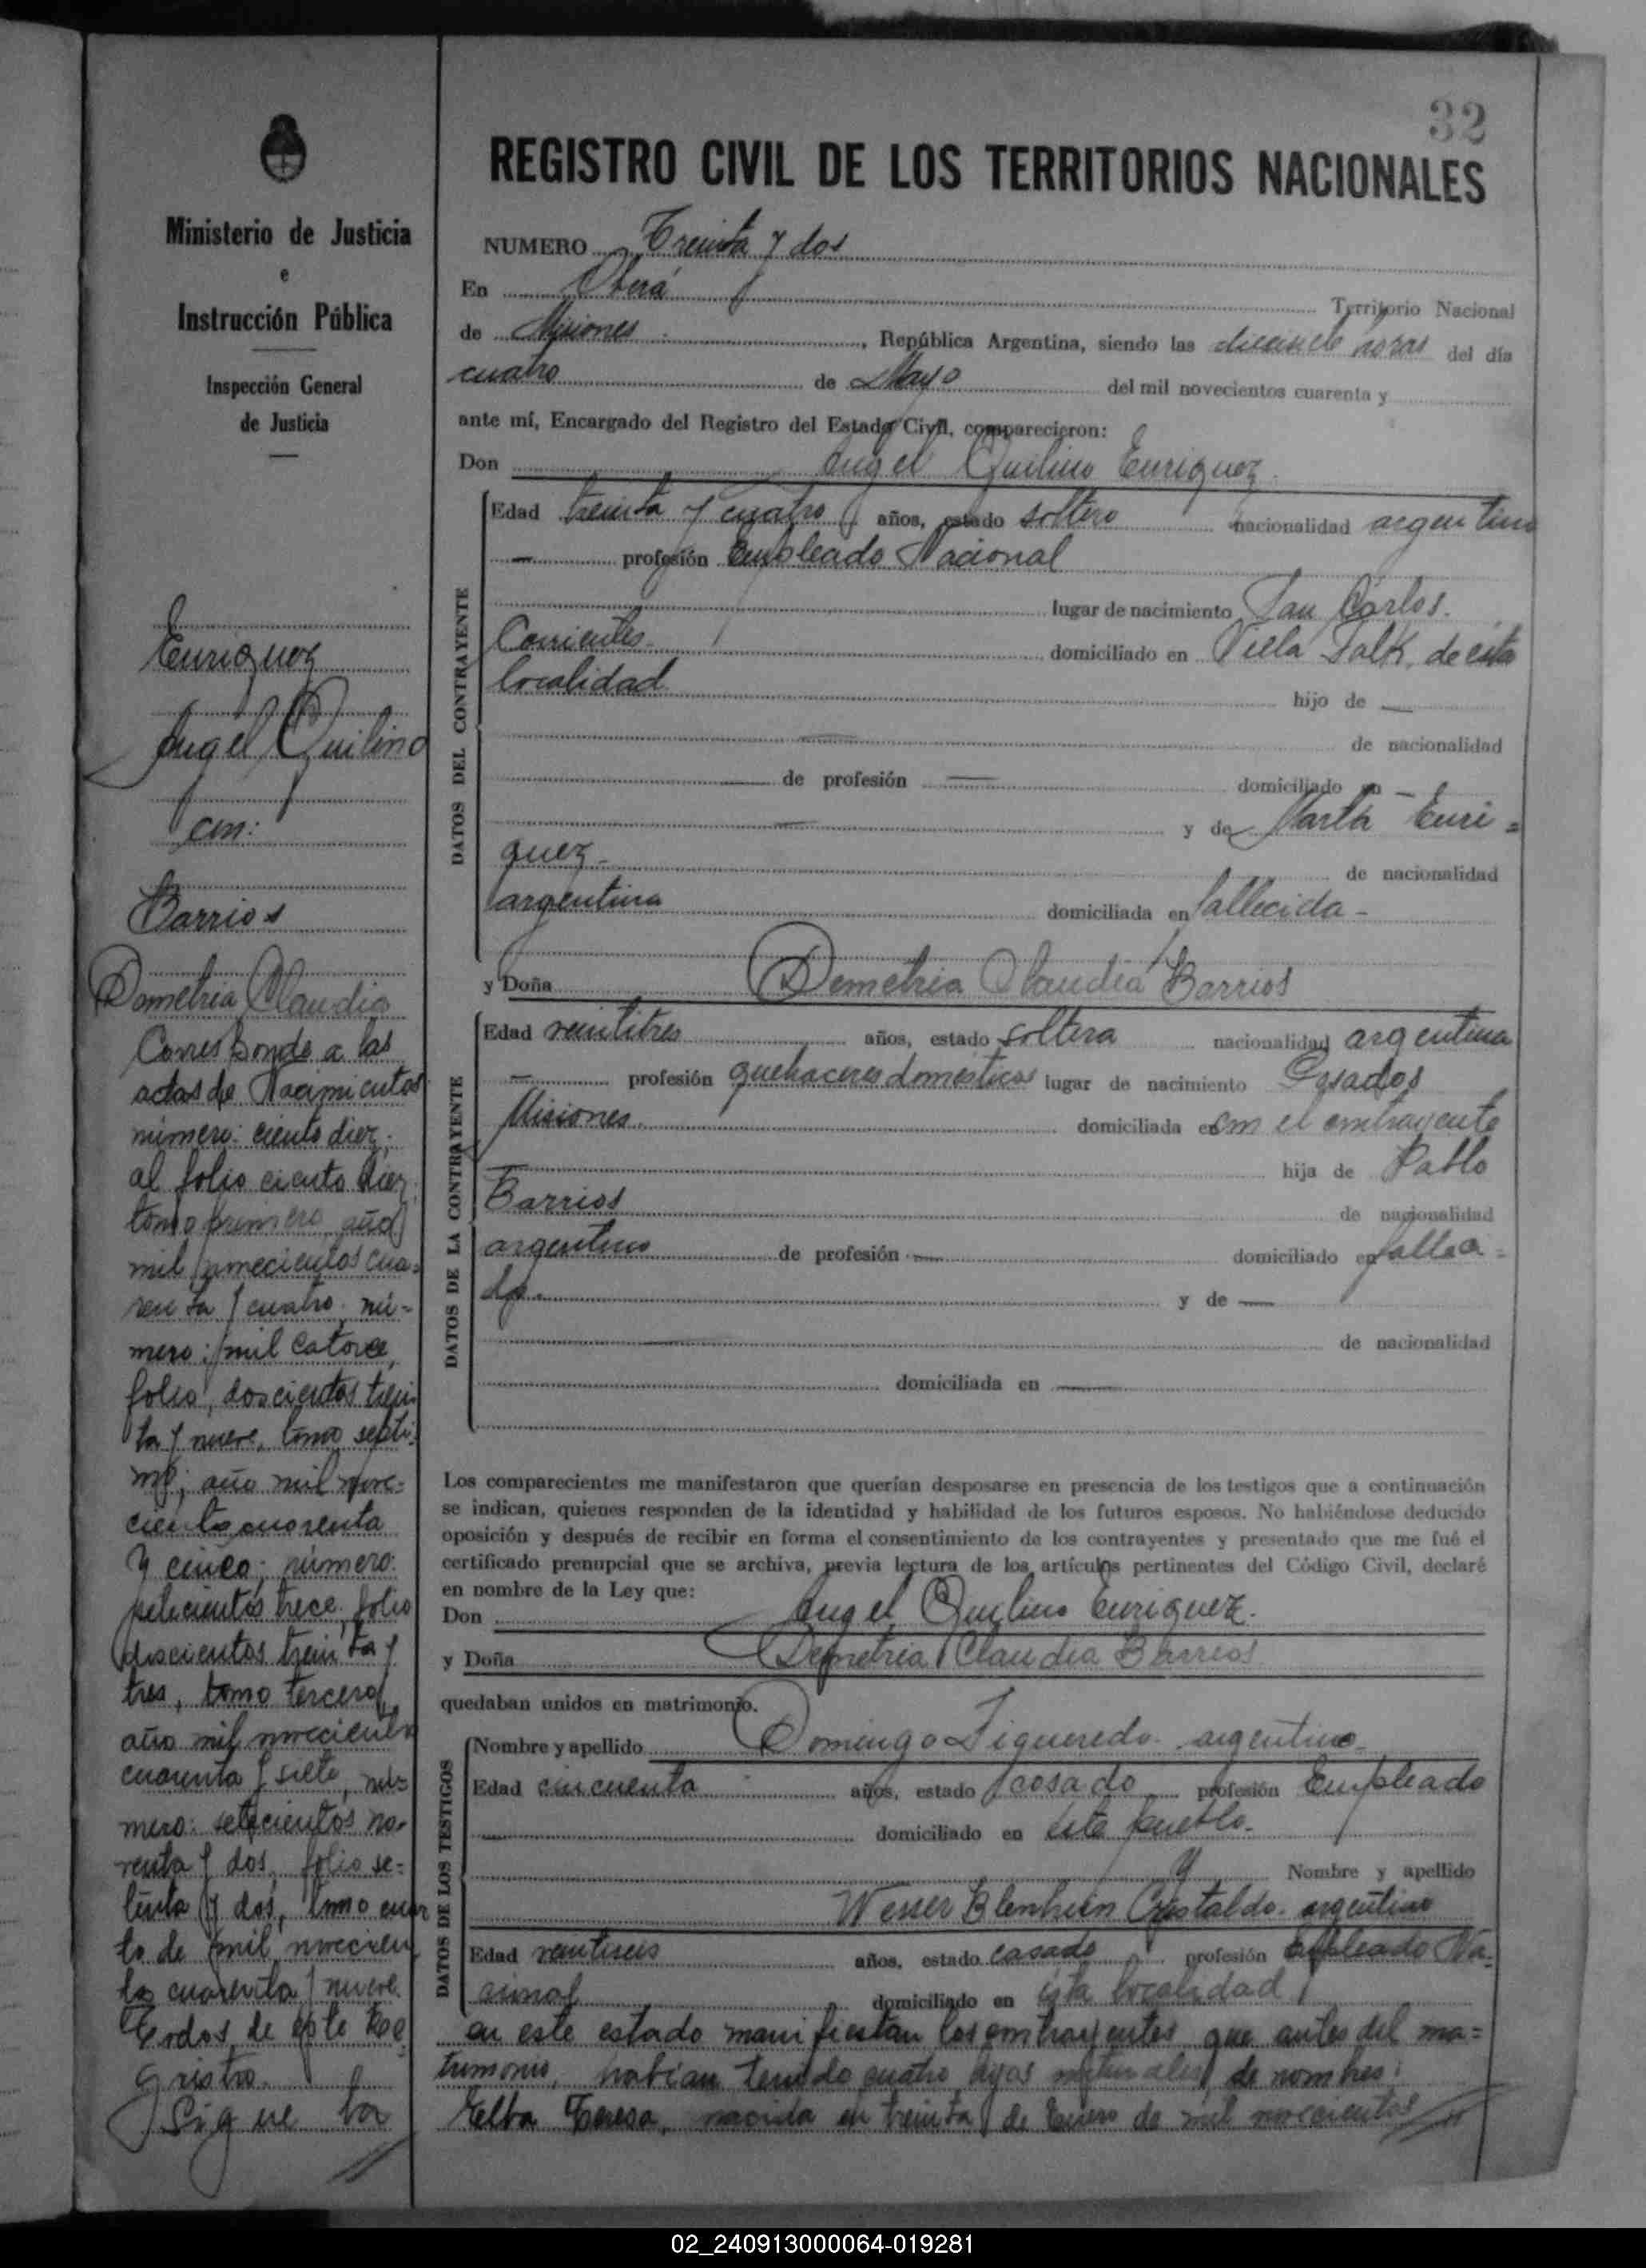 32
Ministerio de Justicia
e
Instrucción Pública
Inspección General
de Justicia
Enriquez
Angel Quilino
con:
Barrios
Demetria Claudia
Corresponde a las
actas de Nacimientos
número: ciento diez,
al folio ciento diez
tomo primero año
mil novecientos cua=
renta y cuatro. nú-
mero: mil catorce,
folio, doscientos trein
ta y nueve, tomo sépti-
mo; año mil nove-
cientos cuarenta
y cinco; número:
seiscientos trece, folio
doscientos treinta y
tres, tomo tercero,
año mil novecientos
cuarenta y siete, nú=
mero: setecientos no-
venta y dos, folio se=
tenta y dos, tomo cuar
to de mil novecien
tos cuarenta y nueve.
Todos de este Re
gistro.
Sigue la
REGISTRO CIVIL DE LOS TERRITORIOS NACIONALES
NUMERO Treinta y dos
En Oberá Territorio Nacional
de Misiones , República Argentina, siendo las horas del día
cuatro de Mayo del mil novecientos cuarenta y
ante mí, Encargado del Registro del Estado Civil, comparecieron:
Don Angel Quilino Enriquez
DATOS DEL CONTRAYENTE
Edad treinta y cuatro años, estado soltero nacionalidad argentino
— profesión Empleado Nacional
lugar de nacimiento San Carlos.
Corrientes. domiciliado en Villa Falk, de esta
localidad hijo de —
— de nacionalidad
— de profesión — domiciliado en —
— y de Marta Enri=
quez- de nacionalidad
argentina domiciliada en fallecida-
y Doña Demetria Claudia Barrios
DATOS DE LA CONTRAYENTE
Edad veintitres años, estado soltera nacionalidad argentina
— profesión quehaceres domésticos lugar de nacimiento Posadas
Misiones. domiciliada en con el contrayente
hija de Pablo
Barrios de nacionalidad
argentino de profesión — domiciliado en falleci-
do. y de —
— de nacionalidad
domiciliada en —
Los comparecientes me manifestaron que querían desposarse en presencia de los testigos que a continuación
se indican, quienes responden de la identidad y habilidad de los futuros esposos. No habiéndose deducido
oposición y después de recibir en forma el consentimiento de los contrayentes y presentado que me fué el
certificado prenupcial que se archiva, previa lectura de los artículos pertinentes del Código Civil, declaré
en nombre de la Ley que:
Don Angel Quilino Enriquez.
y Doña Demetria Claudia Barrios
quedaban unidos en matrimonio.
DATOS DE LOS TESTIGOS
Nombre y apellido Domingo Figueredo. argentino-
Edad cincuenta años, estado casado profesión Empleado
— domiciliado en este pueblo.
y Nombre y apellido
Wesser Cristaldo. argentino
Edad veintiseis años, estado casado profesión Empleado Na-
cional domiciliado en ésta localidad
en este estado manifiestan los contrayentes que antes del ma=
trimonio, habían tenido cuatro hijos naturales, de nombres:
Elba Teresa, nacida en treinta de Enero de mil novecientos
02_240913000064-019281